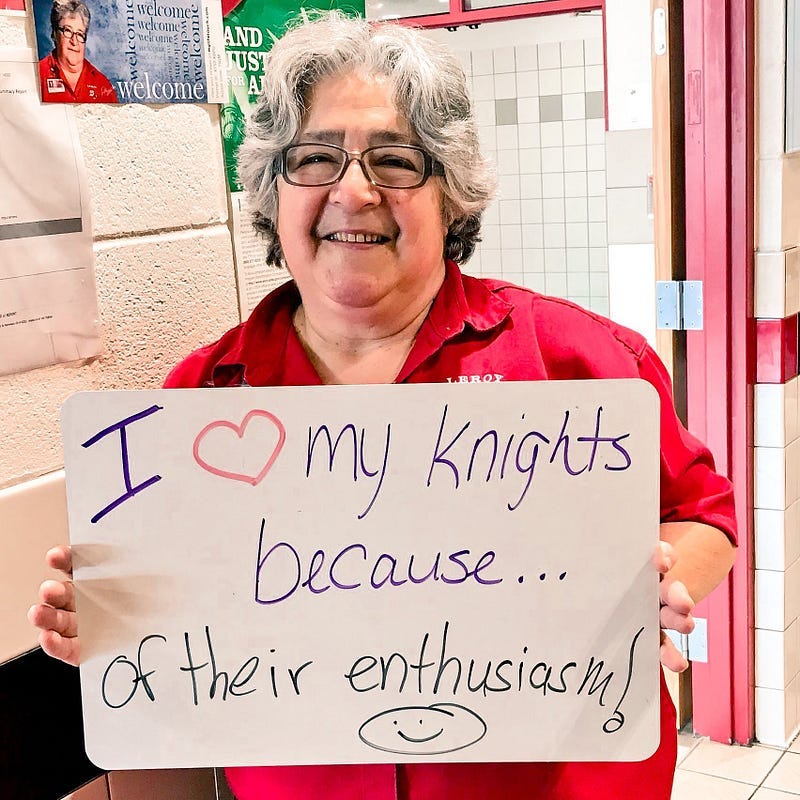 welcome
welcome
welcome
welcome
welcome
AND
JUST
FOR A
LEROY
I ♡ my knights
because...
of their enthusiasm!